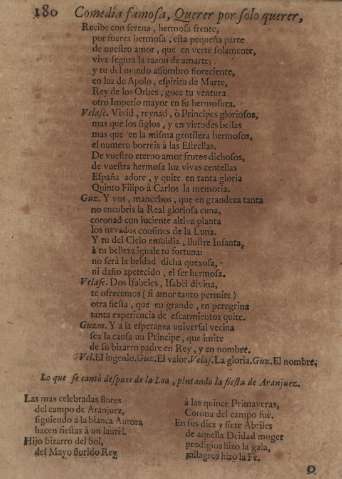 180 Comedia famosa, Querer por solo querer,
Recibe con serena, hermosa frente,
por fuerza hermosa, esta pequeña parte
de nuestro amor, que en verte solamente,
viva segura la razon de amarte:
y tu del mundo assombro floreciente,
en luz de Apolo, espiritu de Marte,
Rey de los Orbes, goze tu ventura
otro Imperio mayor en su hermosura.
Velasc. Vivid, reynad, ò Principes gloriosos,
mas que los siglos, y en virtudes bellas
mas que en la misma gentileza hermosos,
el numero borreis à las Estrellas.
De vuestro eterno amor frutos dichosos,
de vuestra hermosa luz vivas centellas
España adore, y quite en tanta gloria
Quinto Filipo à Carlos la memoria.
Guz. Y vos, mancebos, que en grandeza tanta
no encubris la Real gloriosa cuna,
coronad con luciente altiva planta
los nevados coxines de la Luna.
Y tu del Cielo embidia, ilustre Infanta,
à tu belleza iguale tu fortuna:
no será la beldad dicha quexosa,
ni daño apetecido, el ser hermosa.
Velasc. Dos Isabeles, Isabel divina,
te ofrecemos (si amor tanto permite)
otra fiesta, que en grande, en peregrina
tanta experiencia de escarmientos quite.
Guzm. Y à la esperança universal vecina
sea la causa un Principe, que imite
de su bizarro padre en Rey, y en nombre.
Vel. El ingenio. Guz. El valor. Velas. La gloria. Guz. El nombre.
Lo que se cantò despues de la Loa, pintando la fiesta de Aranjuez.
Las mas celebradas flores
del campo de Aranjuez,
siguiendo a la bizarra Aurora,
hacen fiestas à un laurèl.
Hijo bizarro del Sol,
del Mayo florido Rey
à las quince Primaveras,
Corona del campo fue.
En sus diez y siete Abriles
de aquesta Deidad muger
prodigios hizo la gala,
milagros hizo la Fè.